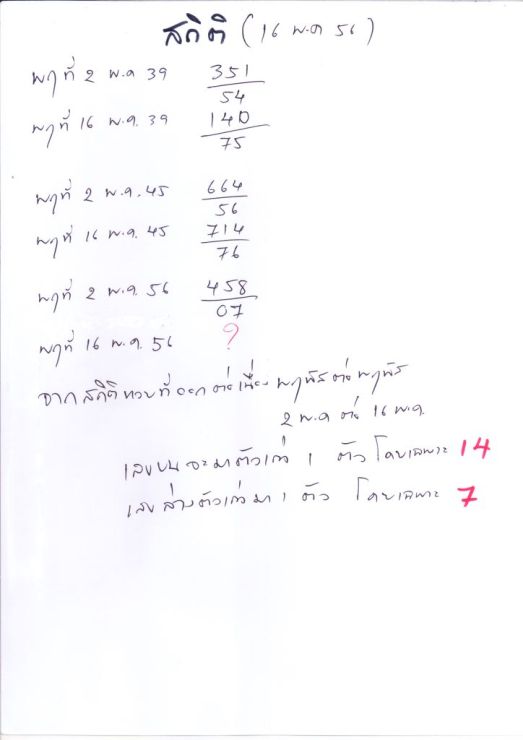 สถิติ (16 พ.ค 56)
พฤที่ 2 พ.ค 39 351
54
พฤที่ 16 พ.ค. 39 140
75
พฤที่ 2 พ.ค. 45 664
56
พฤที่ 16 พ.ค. 45 714
76
พฤที่ 2 พ.ค. 56 458
07
พฤที่ 16 พ.ค. 56 ?
จากสถิติหวยที่ออกต่อเนื่อง พฤหัส ต่อ พฤหัส
2 พ.ค ต่อ 16 พ.ค.
เลขบนจะมาตัวเก่า 1 ตัว โดยเฉพาะ 14
เลขล่างตัวเก่ามา 1 ตัว โดยเฉพาะ 7